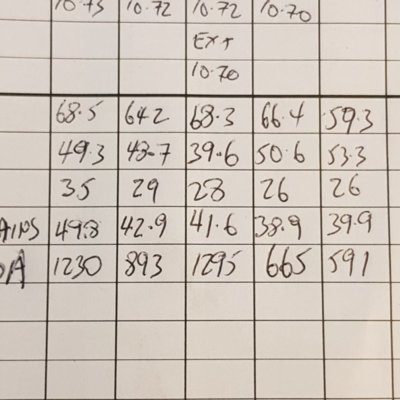 10.73 10.72 10.72 10.70
Ext
10.70
68.5 64.2 68.3 66.4 59.3
49.3 43.7 39.6 50.6 53.3
35 29 28 26 26
AINS 49.8 42.9 41.6 38.9 39.9
OA 1230 893 1295 665 591